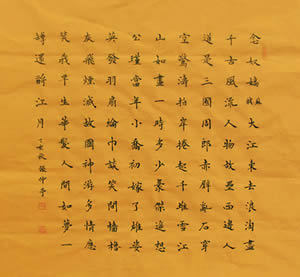 念奴嬌大江東去浪淘盡
千古風流人物故壘西邊人
道是三國周郎赤壁亂石穿
空驚濤拍岸捲起千堆雪江
山如畫一時多少豪傑遙想
公瑾當年小喬初嫁了雄姿
英發羽扇綸巾談笑間檣櫓
灰飛煙滅故國神游多情應
笑我早生華髮人間如夢一
樽還酹江月